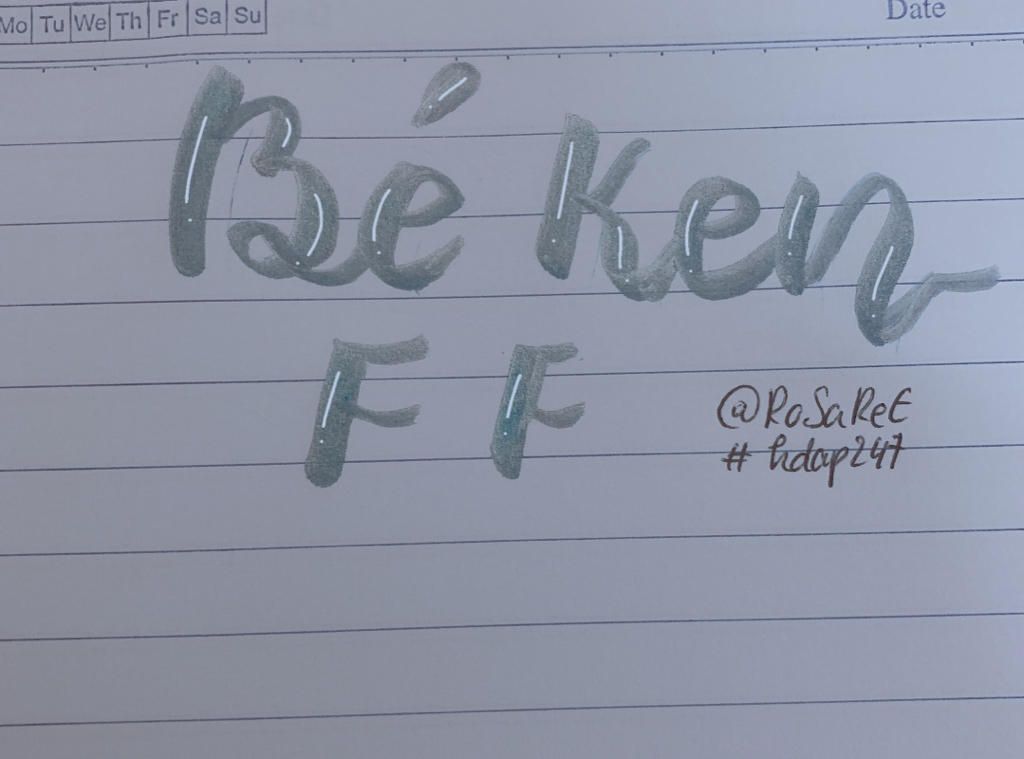 Mo Tu We Th Fr Sa Su
Date
Bé Ken
F F
@RoSaReE
# hdap247